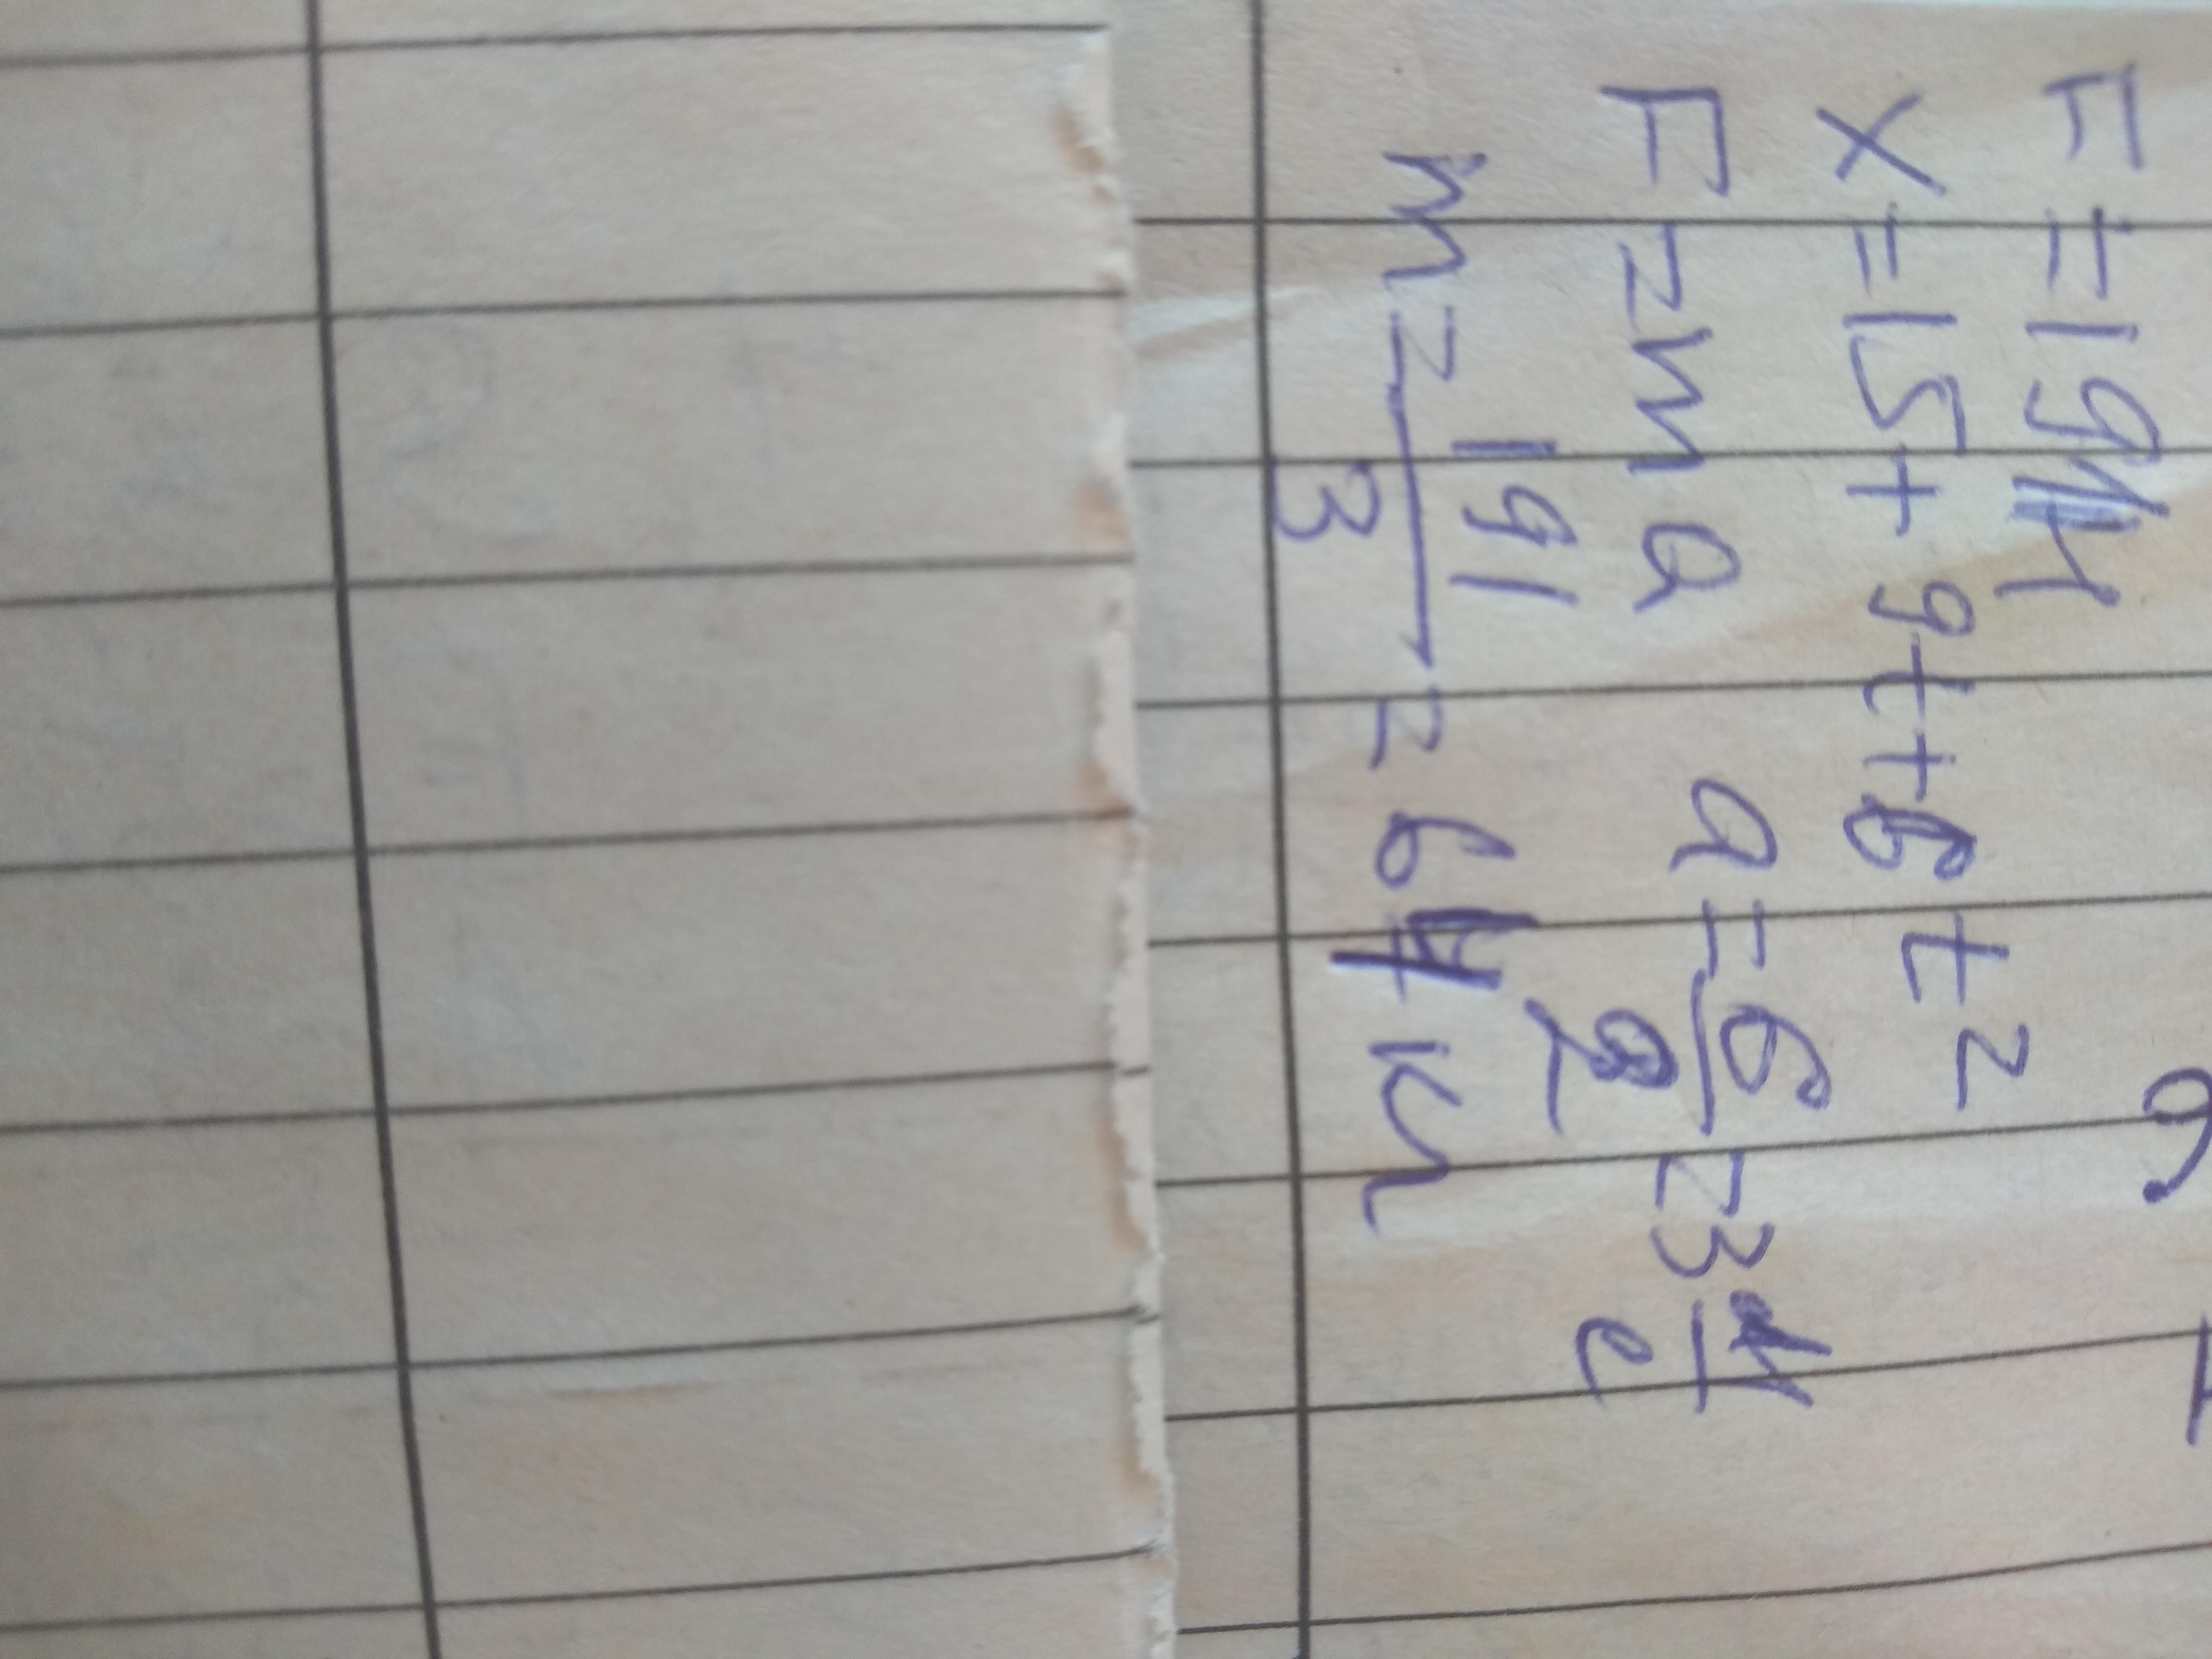 F = 19H
x = 15 + 9t + 6t²
F = ma a = 6/2 = 3 м/с
m = 191/3 = 64 кг